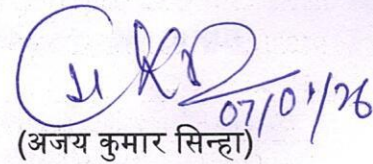 07/01/26
(अजय कुमार सिन्हा)